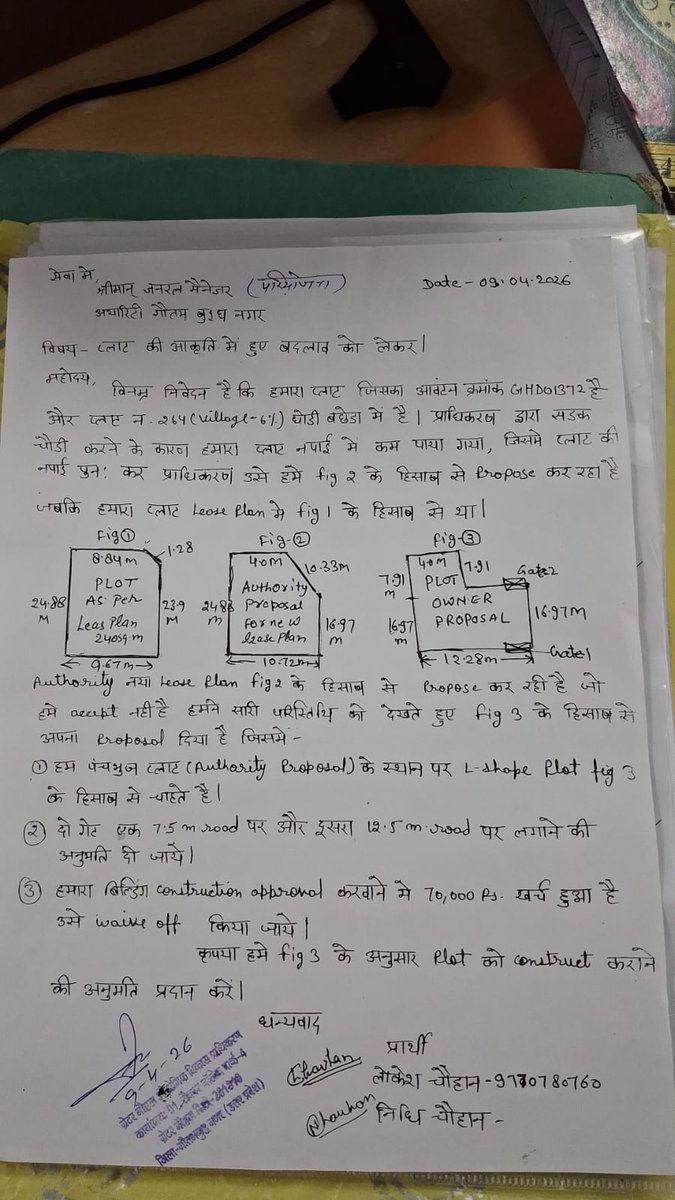 सेवा मे,
श्रीमान् जनरल मैनेजर (परियोजना)
Date - 09.04.2026
अथारिटी गौतम बुद्ध नगर
विषय - प्लाट की आकृति में हुए बदलाव को लेकर।
महोदय,
विनम्र निवेदन है कि हमारा प्लाट जिसका आवंटन क्रमांक GHD01372 है
और प्लाट न. 264 (Village-6%) घोडी बछेडा में है। प्राधिकरण द्वारा सडक
चौडी करने के कारण हमारा प्लाट नपाई मे कम पाया गया, जिसमे प्लाट की
नपाई पुन: कर प्राधिकरण उसे हमे fig 2 के हिसाब से Propose कर रहा है
जबकि हमारा प्लाट Lease Plan मे fig 1 के हिसाब से था।
Fig ①
8.84m
1.28
PLOT
AS Per
Leas Plan
240sqm
24.88 M
23.9 M
9.67m
Fig-②
4.0M
10.33m
Authority
Proposal
For new
Lease Plan
24.88
16.97 M
10.72m
Fig-③
4.0M
7.91
Gate2
7.91 m
PLOT
OWNER
PROPOSAL
16.97 M
16.97M
12.28m
Gate1
Authority नया Lease Plan fig 2 के हिसाब से Propose कर रही है जो
हमे accept नही है हमने सारी परिस्तिथि को देखते हुए fig 3 के हिसाब से
अपना Proposal दिया है जिसमें -
① हम पंचभुज प्लाट (Authority Proposal) के स्थान पर L-shape Plot fig 3
के हिसाब से चाहते है।
② दो गेट एक 7.5 m road पर और दूसरा 12.5 m road पर लगाने की
अनुमति दी जाये।
③ हमारा बिल्डिंग construction approval करवाने मे 70,000 Rs. खर्च हुआ है
उसे waive off किया जाये।
कृपया हमे fig 3 के अनुसार Plot को construct कराने
की अनुमति प्रदान करें।
धन्यवाद
प्रार्थी
लोकेश चौहान - 9770780760
निधि चौहान -
9-4-26
ग्रेटर नौएडा औद्योगिक विकास प्राधिकरण
जिला-गौतमबुद्ध नगर (उत्तर प्रदेश)